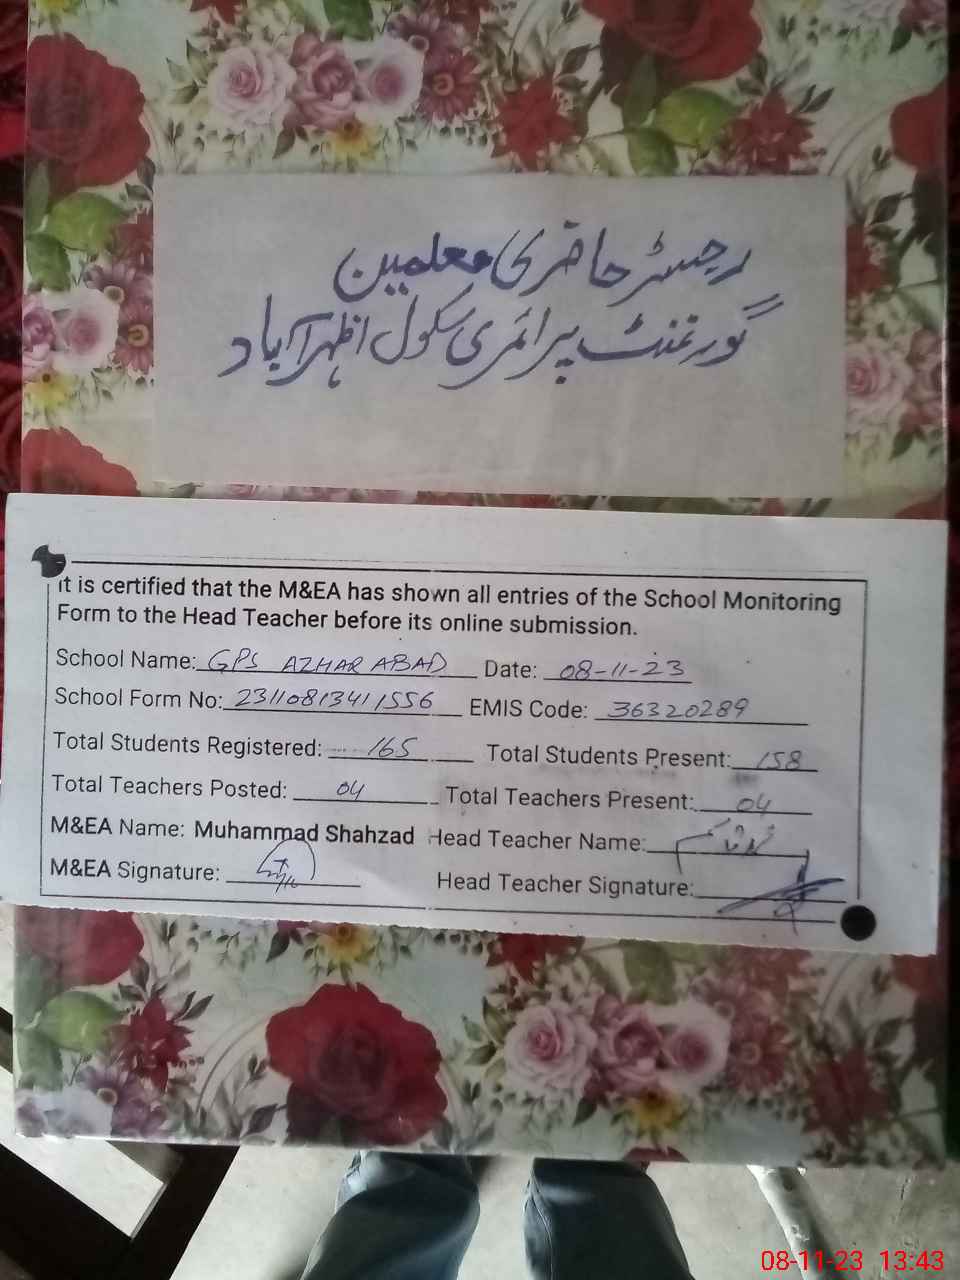 رجسٹر حاضری معلمین
گورنمنٹ پرائمری سکول اظہرآباد
It is certified that the M&EA has shown all entries of the School Monitoring
Form to the Head Teacher before its online submission.
School Name: GPS AZHAR ABAD Date: 08-11-23
School Form No: 23110813411556 EMIS Code: 36320289
Total Students Registered: 165 Total Students Present: 158
Total Teachers Posted: 04 Total Teachers Present: 04
M&EA Name: Muhammad Shahzad Head Teacher Name:
M&EA Signature: Head Teacher Signature:
08-11-23 13:43